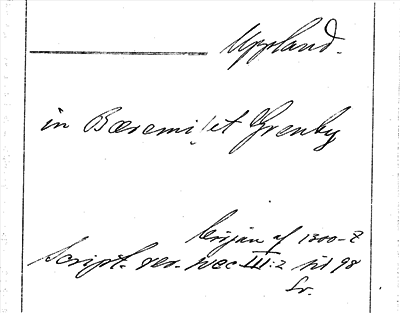 Uppland.
in Bæremi,et Grenby
början af 1300-t
Script. rer. svec III:2 sid 98
Lr.